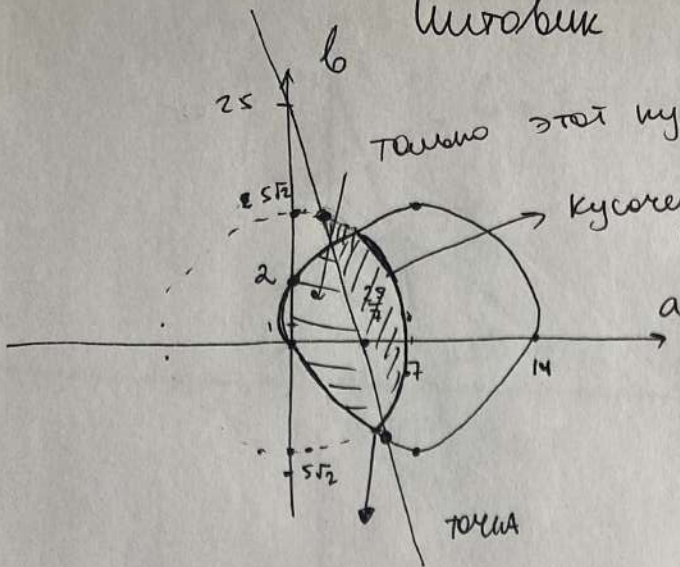 Чистовик
в
25
только этот ку
5√2
кусоче
2
a
1
7
14
5√2
точка